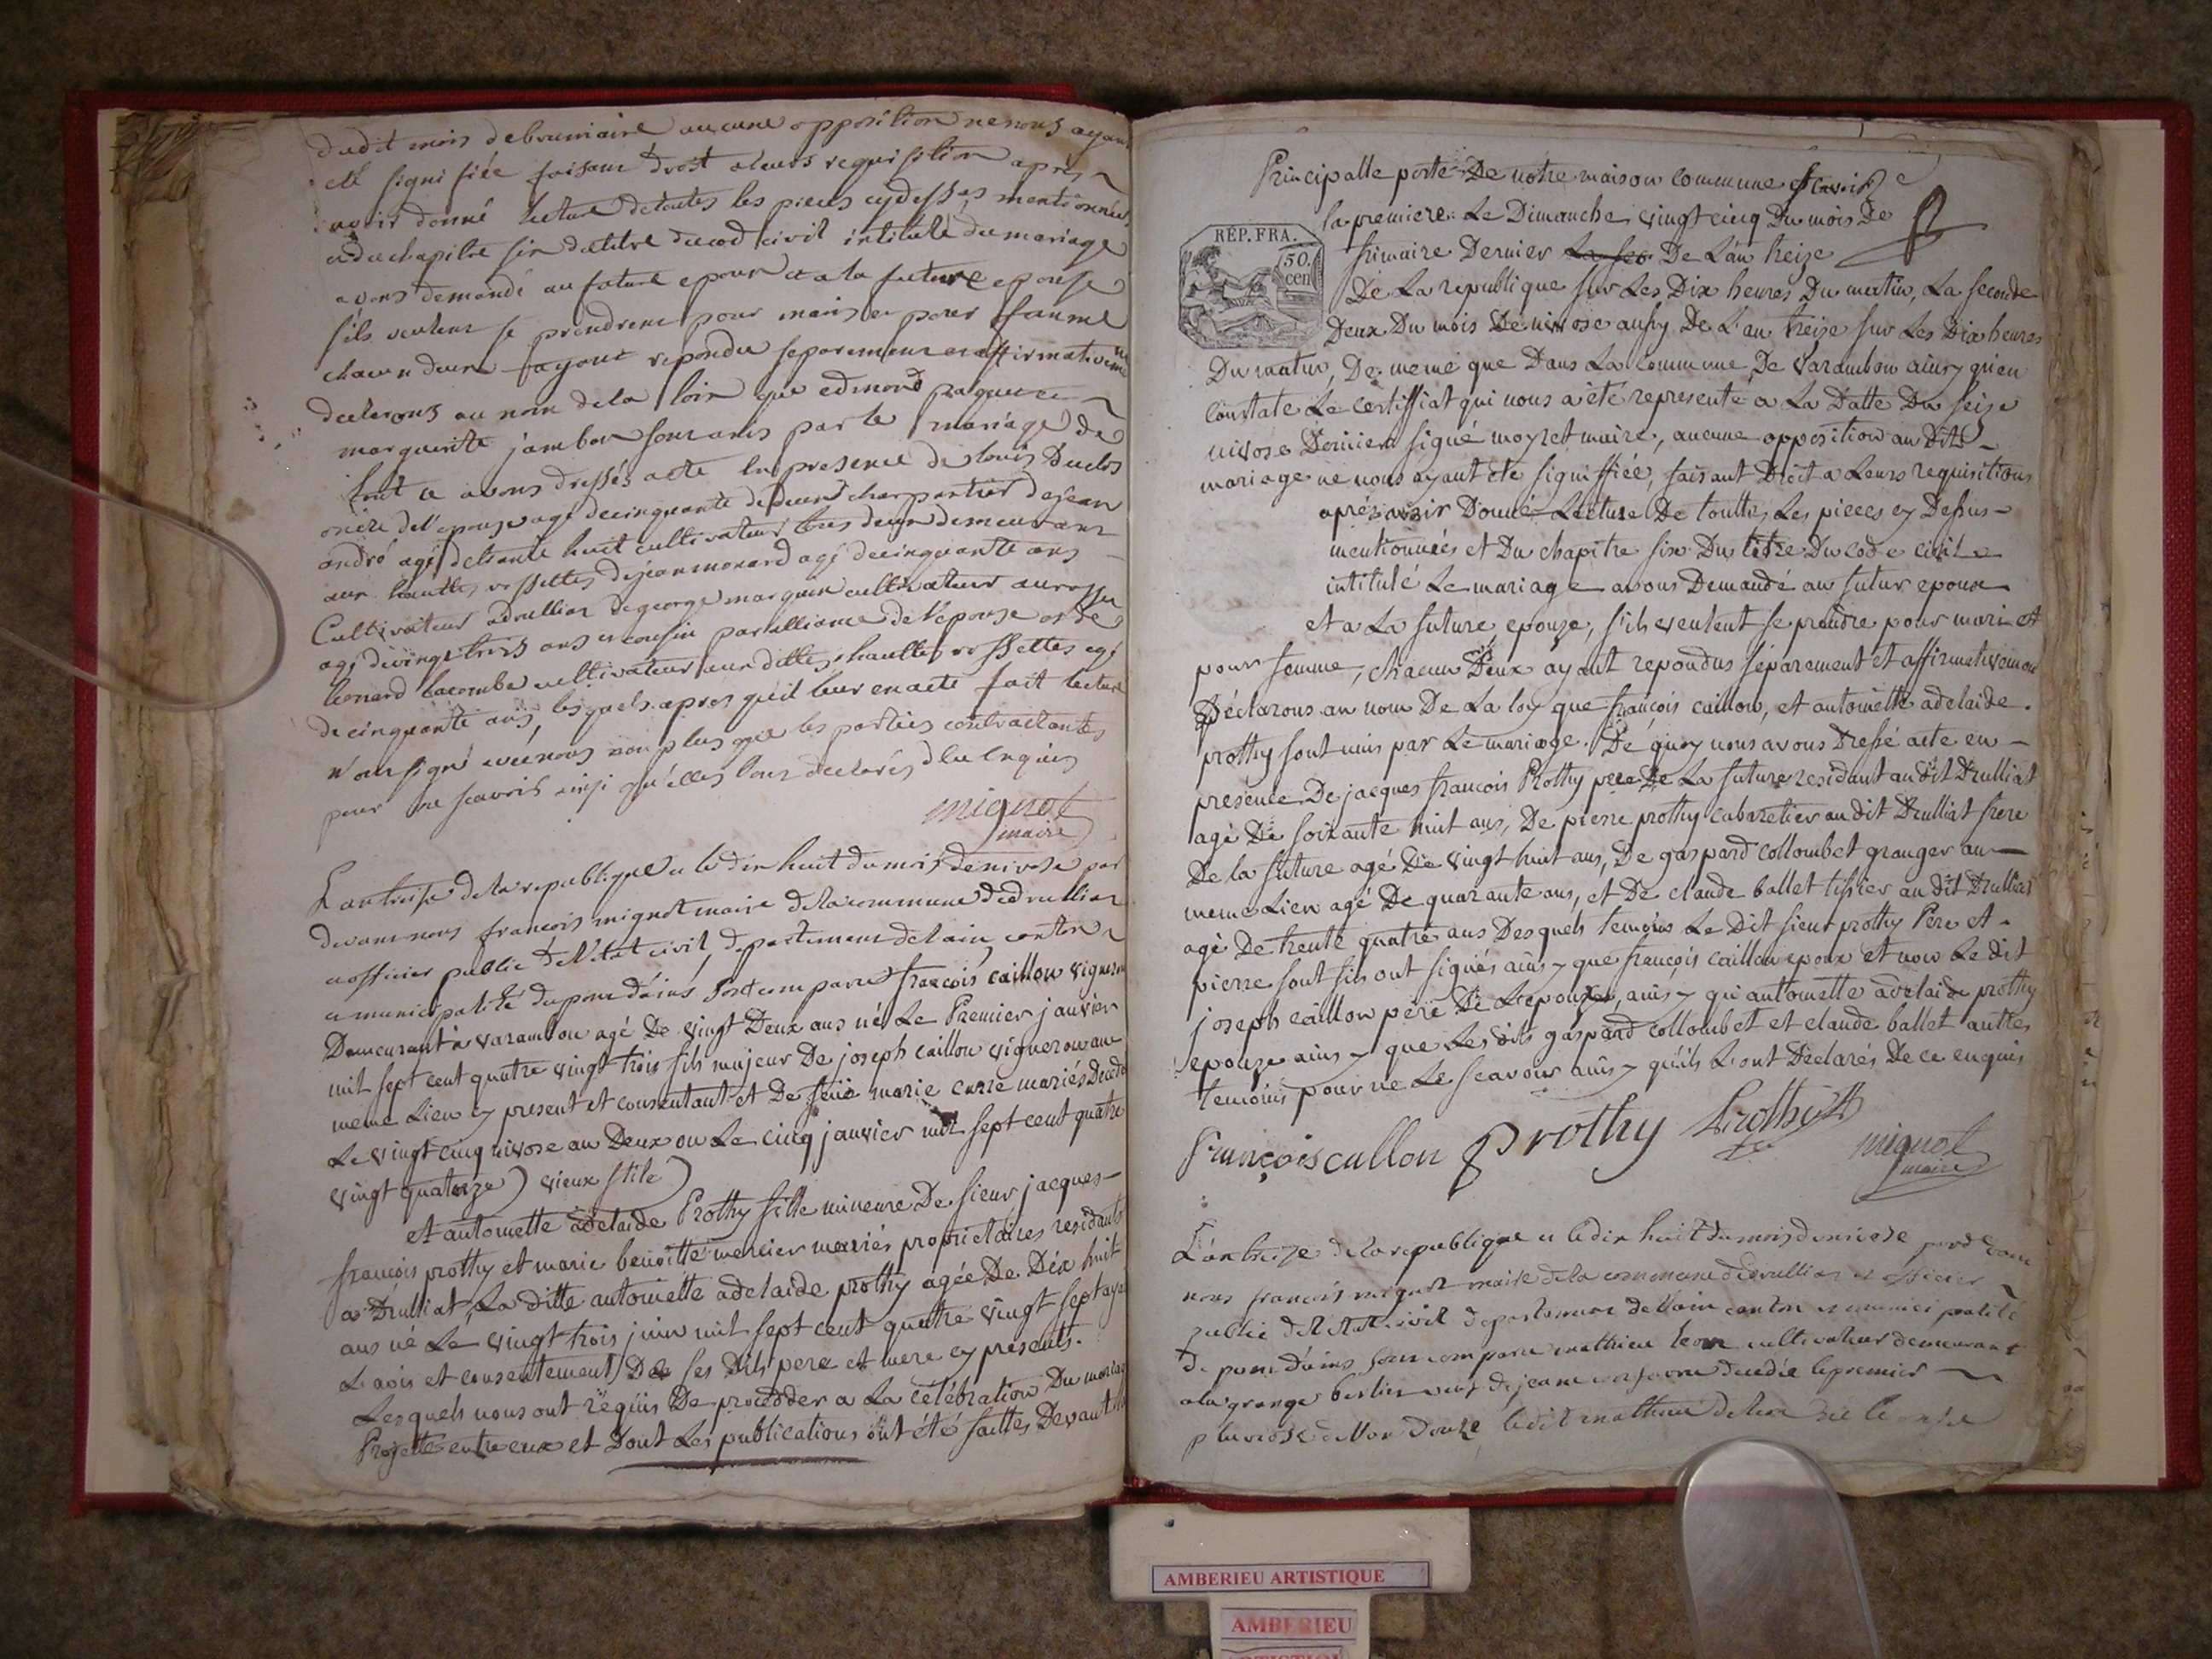 dudit mois debrumaire aucune opposition nenous ayant
eté signifiée faisant droit aleurs requisition après
avoir donné lecture detoutes les pieces cydessus mentionnées
et du chapitre six dutitre ducod civil intitulé dumariage
avons demandé aufutur epoux et a la future epouse
sils veulent se prendrent pour mari et pour famme
chacun deux ayant repondu separement et affirmativement
declarons au nom dela loix que edmond paquet et
marguerite jambon sont unis par le mariage de
tout ce avons dressés acte en presence de louis Duclos
agé decinquante
andré agé huit cultivateur tous deux demeurant
aux hauttes rossettes dejean monard agé decinquante ans
Cultivateur adrulliat de george marguin cultivateur
agé devingt trois ans et cousin paralliance de l'epouse et de
leonard lacombe cultivateur aux dittes hauttes rossettes agé
de cinquante ans, lesquels apres qu'il leur enaété fait lecture
n'ont signé avecnous non plus que les parties contractantes
pour ne scavoir ainsi qu'elles l'ont declarés de ce enquis
mignot
maire
L'an treise dela republique et le dix huit du mois denivose par
devant nous françois mignot maire delacommune dedrulliat
et officier public de l'etat civil, departement delain, canton
et municipalité dupont d'ains sont comparu françois caillon vigneron
Demeurant à varambon agé De vingt Deux ans né Le Premier janvier
mil sept cent quatre vingt trois fils majeur De joseph caillon vigneron au
meme Lieu cy present et consentant et De feüe marie carre mariés Decedé
Le vingt cinq nivose an Deux ou Le cinq janvier mil sept cent quatre
vingt quatorze) vieux stile)
et antoinette adelaide Prothy fille mineure De sieur jacques-
françois prothy et marie benoitte mercier mariés proprietaires residants
a Drulliat, La ditte antoinette adelaide prothy agée De Dix huit
ans né Le vingt trois juin mil sept cent quatre vingt sept ayant
L'avis et consentement De ses dits pere et mere cy presents.
Lesquels nous ont requis De procedder a La célébration Du mariage
Projetté entre eux et Dont Les publications ont été faittes Devant la
Principalle porte De notre maison commune scavoir
la premiere Le Dimanche vingt cinq Du mois De
REP. FRA.
50.
cen
frimaire Dernier La sec De L'an treize
De La republique sur Les Dix heures Du matin, La seconde
Deux Du mois De nivose aussy De L'an treize sur Les Dix heures
Du matin, De meme que Dans La commune De varambon ainsy qu'en
Constate Le certiffiat qui nous a été representé a La Datte Du seize
nivose Dernier signé moyret maire, aucune opposition au Dit
mariage ne nous ayant eté signiffiée, faisant Droit a Leurs requisitions
aprés avoir Donné Lecture De touttes Les pieces cy Dessus-
mentionnées et Du chapitre six Du titre Du code civil
intitulé Le mariage avons Demandé au futur epoux
et a La future epouze, s'ils veulent se prendre pour mari et
pour femme, chacun Deux ayant repondus séparement et affirmativement
Déclarons au nom De La loy que françois caillon, et antoinette adelaide.
prothy sont unis par Le mariage. De quoy nous avons Dressé acte en-
presence De jacques françois Prothy pere De La future residant au Dit Drulliat
agé De soixante huit ans, De pierre prothy Cabaretier au dit Drulliat frere
De la future agé De vingt huit ans, De gaspard collombet granger au
meme Lieu agé De quarante ans, et De claude ballet tissier au dit Drulliat
agé De trente quatre ans Desquels temoins Le Dit sieur prothy Pére et.
pierre sont fils ont signés ainsy que françois caillon epoux et non Le dit
joseph caillon pere De L'epoux, ainsy qu'antoinette adelaide prothy
epouze ainsy que Les dits gaspard collombet et claude ballet autres
temoins pour ne Le scavoir ainsy qu'ils L'ont Déclarés De ce enquis
François cullon Prothy Prothy
mignot
maire
L'an treize dela republique et le dix huit dumois denivose pardevant
nous francois mignot maire dela commune dedrulliat et officier
public del'etat civil departement delain canton et municipalité
de pont dains sont comparu mathieu cultivateur demeurant
ala grange berlier veuf dejeanne decedée lepremier
pluviose de l'an Douze ledit mathieu
AMBERIEU ARTISTIQUE
AMBERIEU